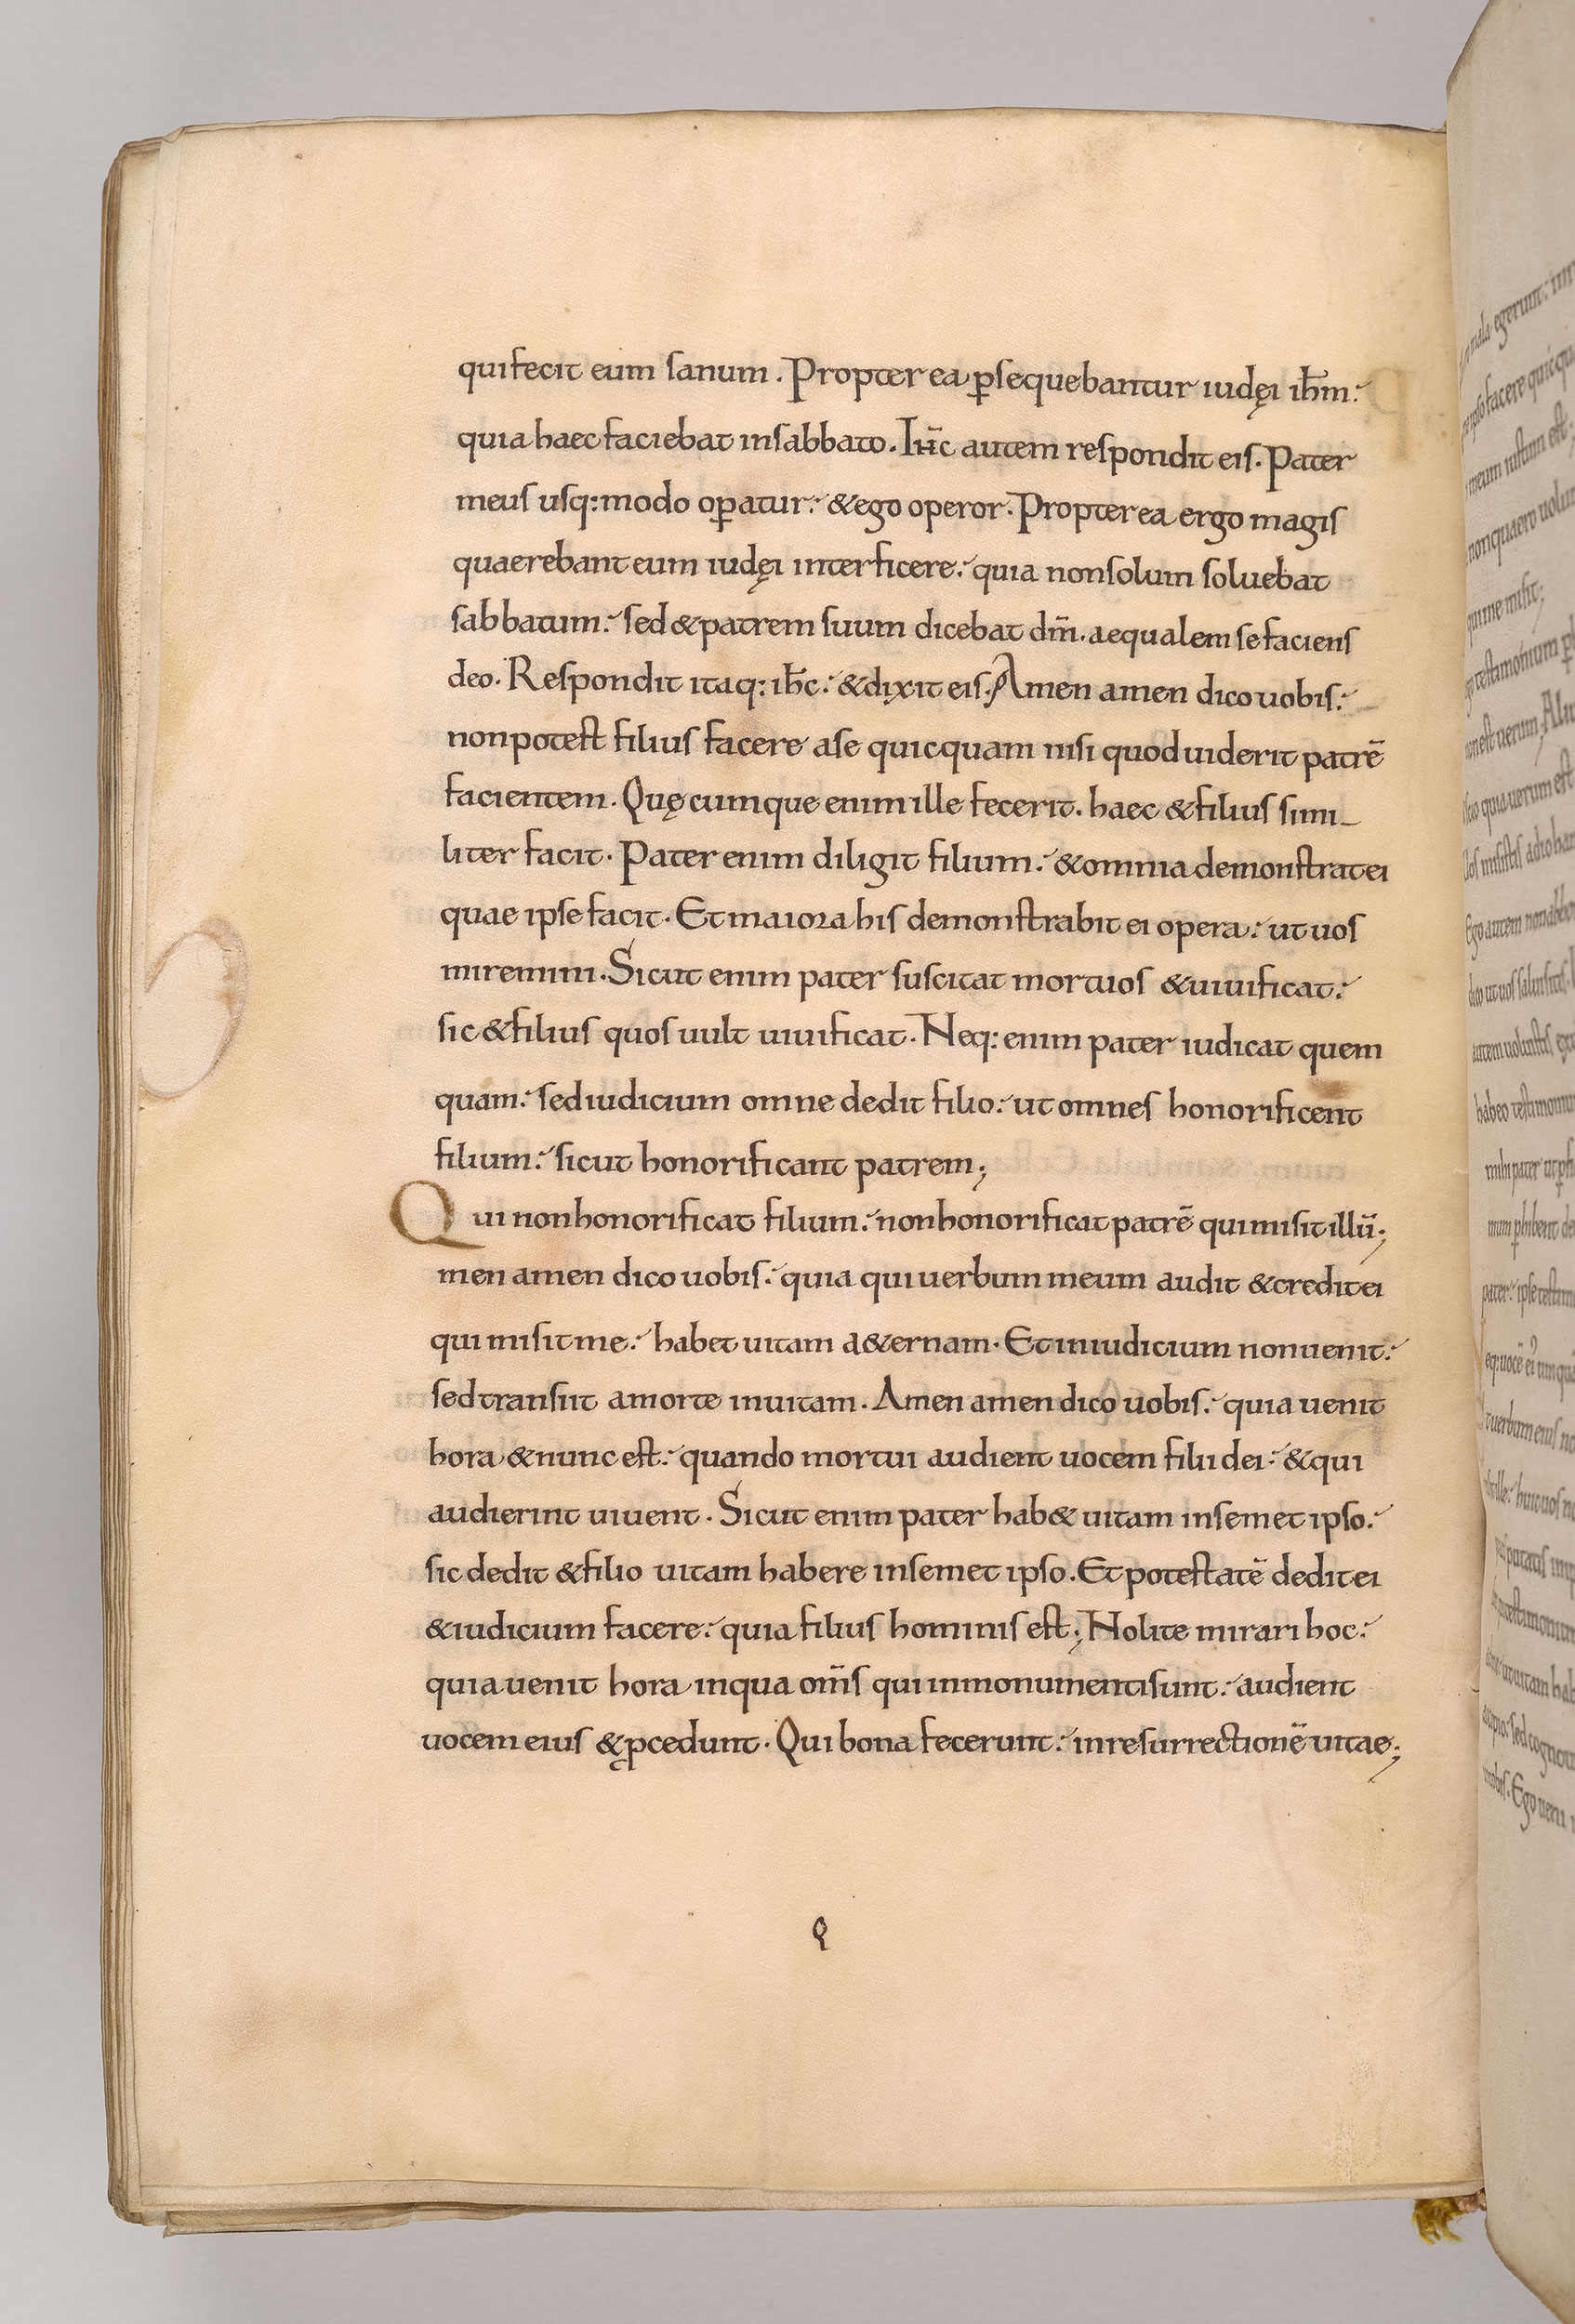 qui fecit eum sanum. Propterea ꝑsequebantur iudęi ihm̄:
quia haec faciebat in sabbato. Ih̄c autem respondit eis. Pater
meus usq: modo oꝑatur: & ego operor. Propterea ergo magis
quaerebant eum iudęi interficere: quia non solum soluebat
sabbatum: sed & patrem suum dicebat dm̄. aequalem se faciens
deo. Respondit itaq: ih̄c: & dixit eis. Amen amen dico uobis:
non potest filius facere a se quicquam nisi quod uiderit patrē
facientem. Quęcumque enim ille fecerit. haec & filius simi_
liter facit. Pater enim diligit filium: & omnia demonstrat ei
quae ipse facit. Et maiora his demonstrabit ei opera: ut uos
miremini. Sicut enim pater suscitat mortuos & uiuificat:
sic & filius quos uult uiuificat. Neq: enim pater iudicat quem
quam: sed iudicium omne dedit filio: ut omnes honorificent
filium: sicut honorificant patrem;
Qui non honorificat filium: non honorificat patrē qui misit illū;
men amen dico uobis: quia qui uerbum meum audit & credit ei
qui misit me: habet uitam a&ernam. Et in iudicium non uenit:
sed transiit a morte in uitam. Amen amen dico uobis: quia uenit
hora & nunc est: quando mortui audient uocem filii dei: & qui
audierint uiuent. Sicut enim pater hab& uitam in semet ipso:
sic dedit & filio uitam habere in semet ipso. Et potestatē dedit ei
& iudicium facere: quia filius hominis est; Nolite mirari hoc:
quia uenit hora in qua om̄s qui in monumentis sunt: audient
uocem eius & ꝓcedunt. Qui bona fecerunt: in resurrectionē uitae;
Q